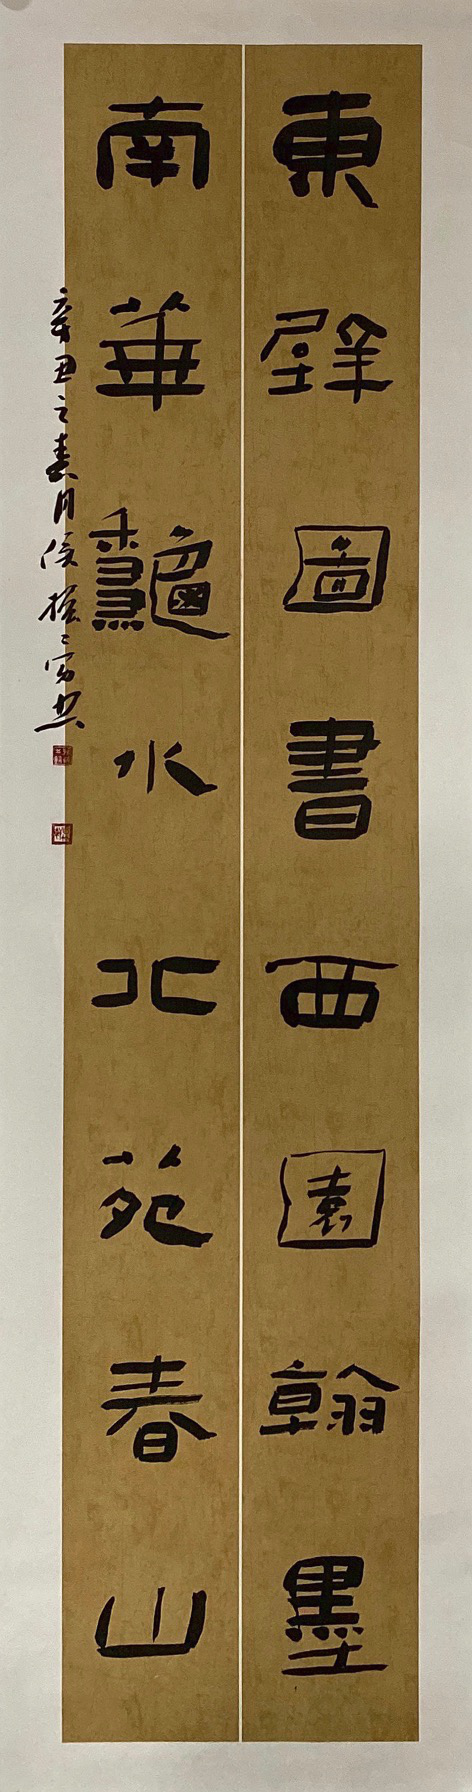 東壁圖書西園翰墨
南華龝水北苑春山
辛丑之春月